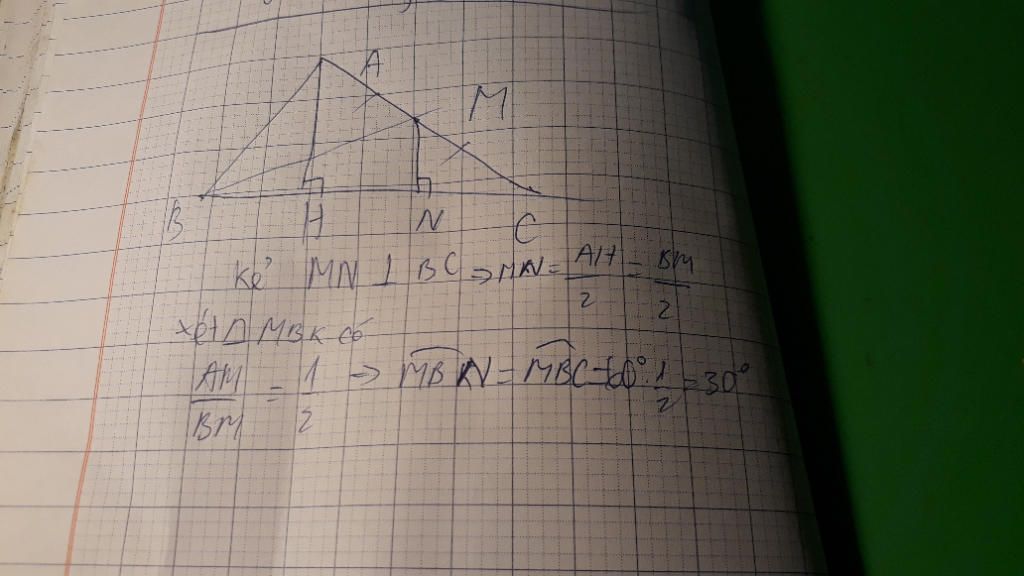 A
M
B
H
N
C
Kẻ MN ⊥ BC ⇒ MN = AH/2 = BM/2
xét Δ MBK có
AM/BM = 1/2 → MBN = MBC = 60° . 1/2 = 30°